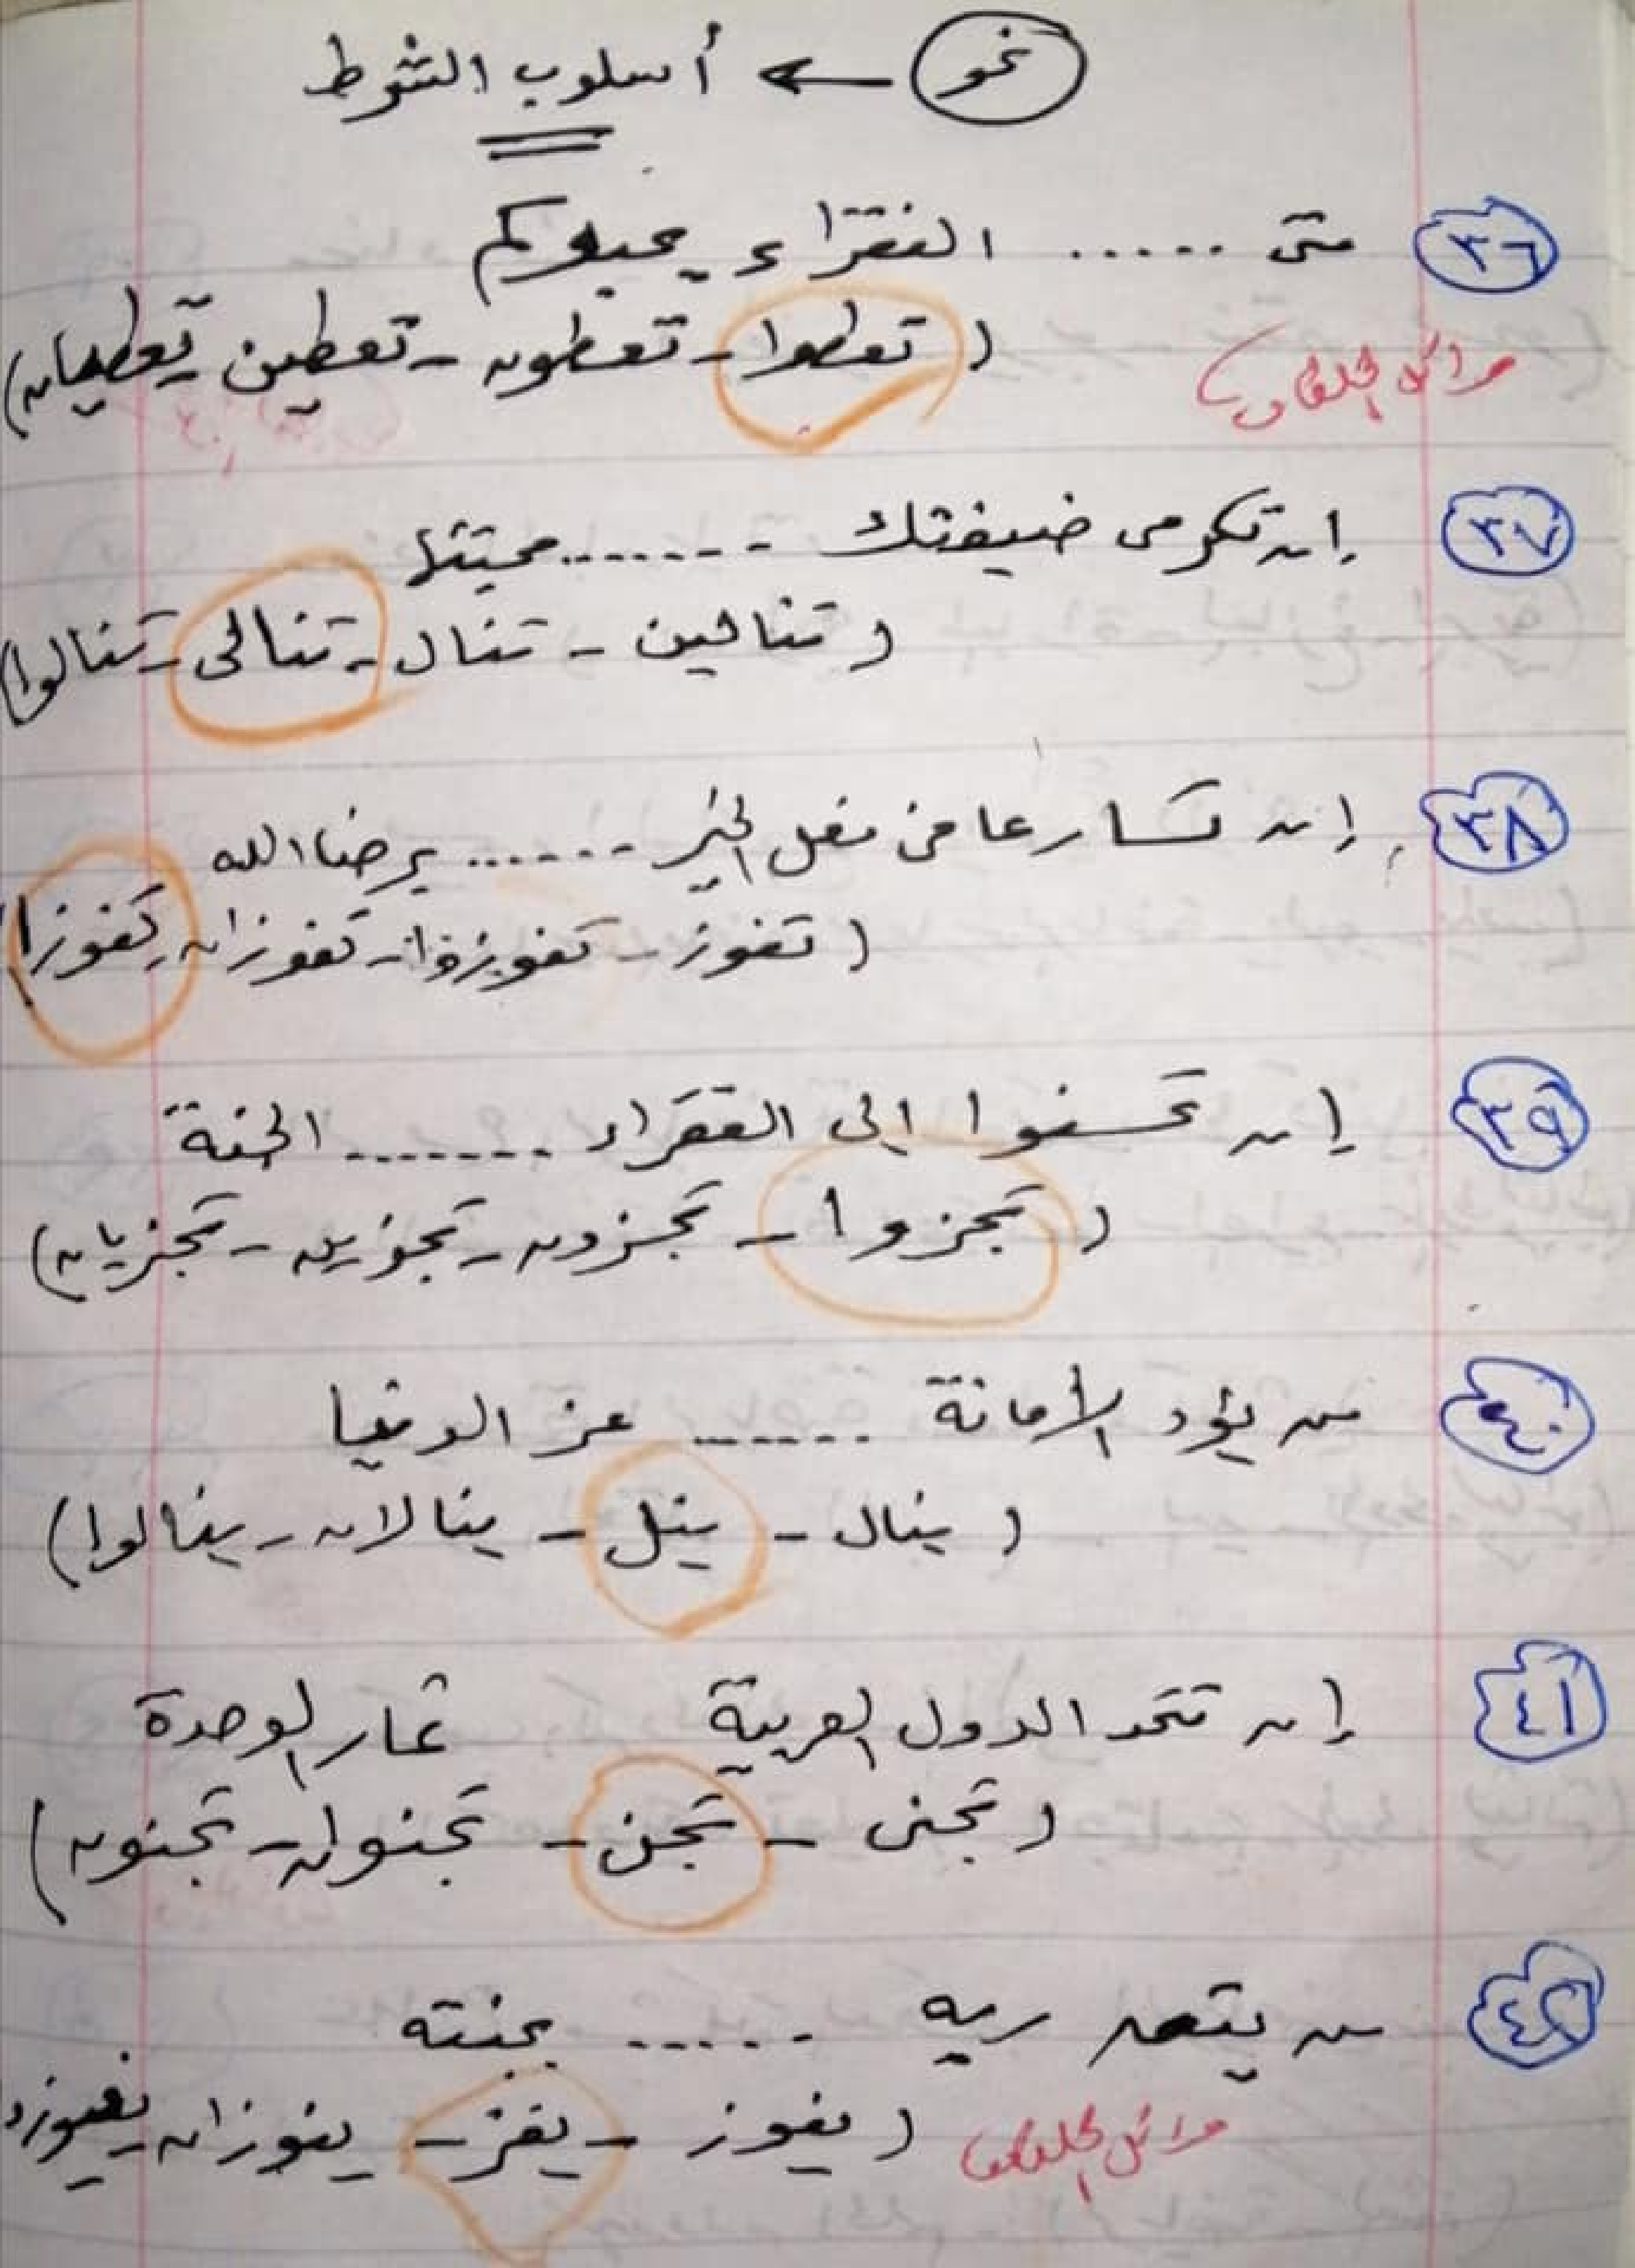 نحو ← أسلوب الشرط
٣٦ متى ...... الفقراء يحبوكم
( تعطوا - تعطون - تعطين - تعطيان )
٣٧ إن تكرمى ضيفتك ....... محبتها
( تنالين - تنال - تنالى - تنالوا )
٣٨ إن تسارعا فى فعل الخير ....... برضا الله
( تفوز - تفوزوا - تفوزان - تفوزا
٣٩ إن تحسنوا إلى الفقراء ....... الجنة
( تجزوا - تجزون - تجزين - تجزيان )
٤٠ من يؤد الأمانة ....... عز الدنيا
( ينال - ينل - ينالان - ينالوا )
٤١ إن تتحد الدول العربية ثمار الوحدة
( تجنى - تجن - تجنوان - تجنون )
٤٢ من يتق ربه ...... بجنته
( يفوز - يفز - يفوزان - يفوزوا